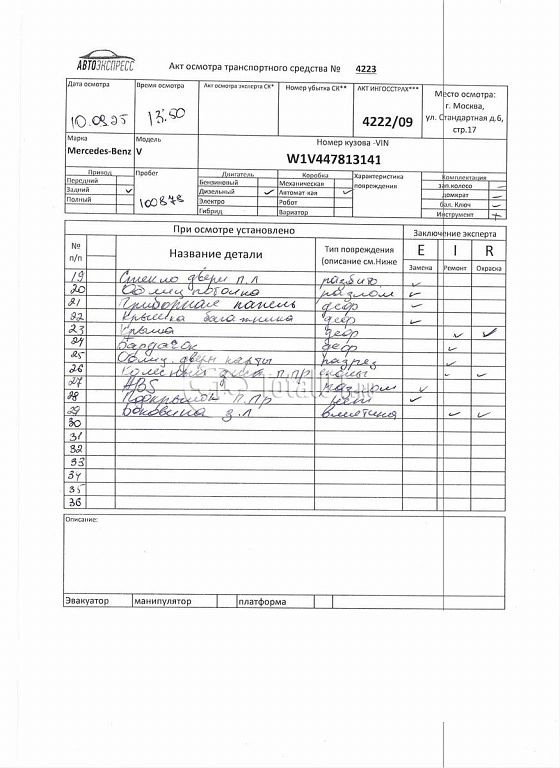 АВТОЭКСПРЕСС
Акт осмотра транспортного средства № 4223
Дата осмотра
Время осмотра
Акт осмотра эксперта СК*
Номер убытка СК**
АКТ ИНГОССТРАХ***
Место осмотра:
г. Москва,
ул. Стандартная д.6,
стр.17
10.09.25
13:50
4222/09
Марка
Модель
Номер кузова -VIN
Mercedes-Benz
V
W1V447813141
Привод
Пробег
Двигатель
Коробка
Характеристика
повреждения
Комплектация
Передний
Бензиновый
Механическая
зап.колесо
Задний
Дизельный
Автомат кая
домкрат
Полный
Электро
Робот
бал. Ключ
Гибрид
Вариатор
Инструмент
100878
При осмотре установлено
Заключение эксперта
№
п/п
Название детали
Тип повреждения
(описание см.Ниже
E I R
Замена Ремонт Окраска
19 Стекло двери П.Л разбито
20 Облиц потолка разлом
21 Приборная панель деф
22 Крышка багажника деф
23 Крыша деф
24 Бардачок деф
25 Облиц. двери карты разрез
26 п.пр
27 ABS разлом
28 Подкрылок п.пр нет
29 Боковина з.л вмятина
30
31
32
33
34
35
36
Описание:
Эвакуатор
манипулятор
платформа